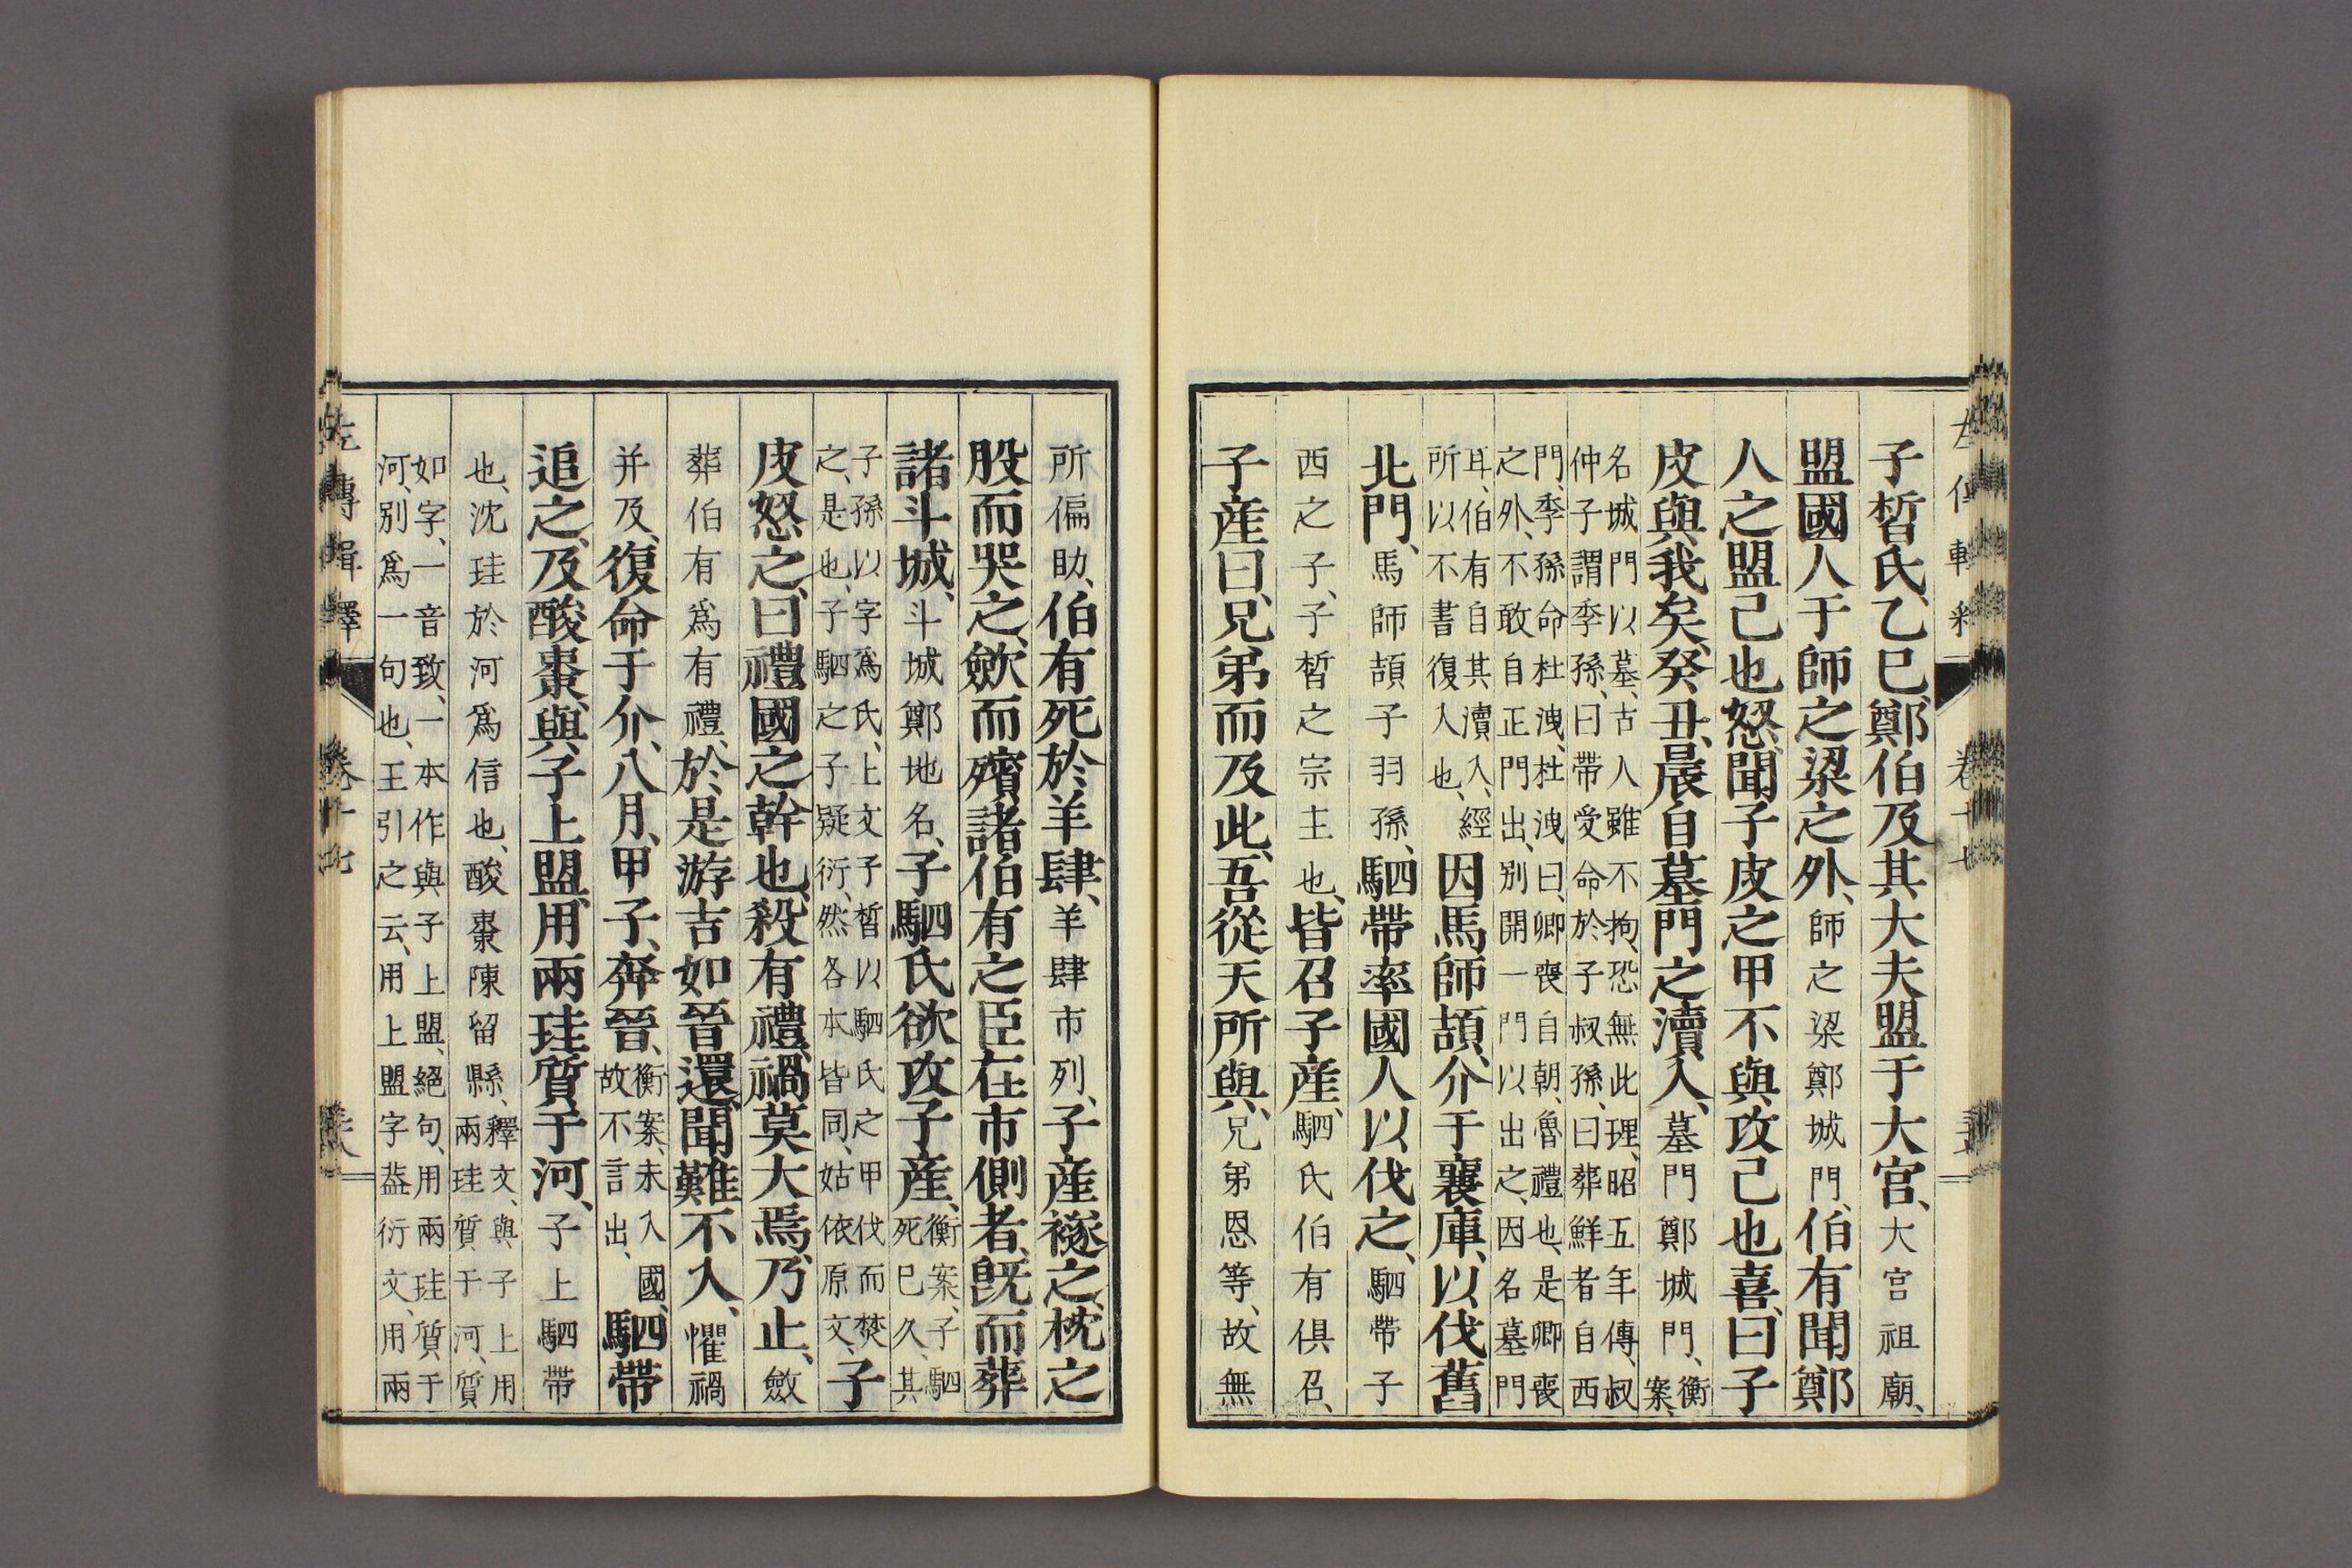 子晳氏、乙巳、鄭伯及其大夫盟于大宮、大宮祖廟、
盟國人于師之梁之外、師之梁鄭城門、伯有聞鄭
人之盟己也怒、聞子皮之甲不與攻己也喜、曰子
皮與我矣、癸丑、晨自墓門之瀆入、墓門鄭城門、衡案、
名城門以墓、古人雖不拘、恐無此理、昭五年傳、叔
仲子謂季孫、曰帶受命於子叔孫、曰葬鮮者自西
門、季孫命杜洩、杜洩曰、卿喪自朝、魯禮也、是卿喪
之外、不敢自正門出、別開一門以出之、因名墓門
耳、伯有自其瀆入、經
所以不書復入也、
因馬師頡、介于襄庫、以伐舊
北門、馬師頡子羽孫、駟帶率國人以伐之、駟帶子
西之子、子晳之宗主也、皆召子産、駟氏伯有俱召、
子産曰、兄弟而及此、吾從天所與、兄弟恩等、故無
所偏助、伯有死於羊肆、羊肆市列、子産襚之、枕之
股而哭之、歛而殯諸伯有之臣在市側者、既而葬
諸斗城、斗城鄭地名、子駟氏欲攻子産、衡案、子駟
死已久、其
子孫以字爲氏、上文子晳以駟氏之甲伐而焚
之、是也、子駟之子疑衍、然各本皆同、姑依原文、
子
皮怒之、曰禮國之幹也、殺有禮、禍莫大焉、乃止、斂
葬伯有爲有禮、於是游吉如晉還、聞難不入、懼禍
并及、復命于介、八月、甲子、奔晉、衡案、未入國、
故不言出、
駟帶
追之、及酸棗、與子上盟、用兩珪質于河、子上駟帶
也、沈珪於河爲信也、酸棗陳留縣、釋文、與子上用
兩珪質于河、質
如字、一音致、一本作與子上盟、絕句、用兩珪質于
河、別爲一句也、王引之云、用上盟字葢衍文、用兩
左傳輯釋 卷十九